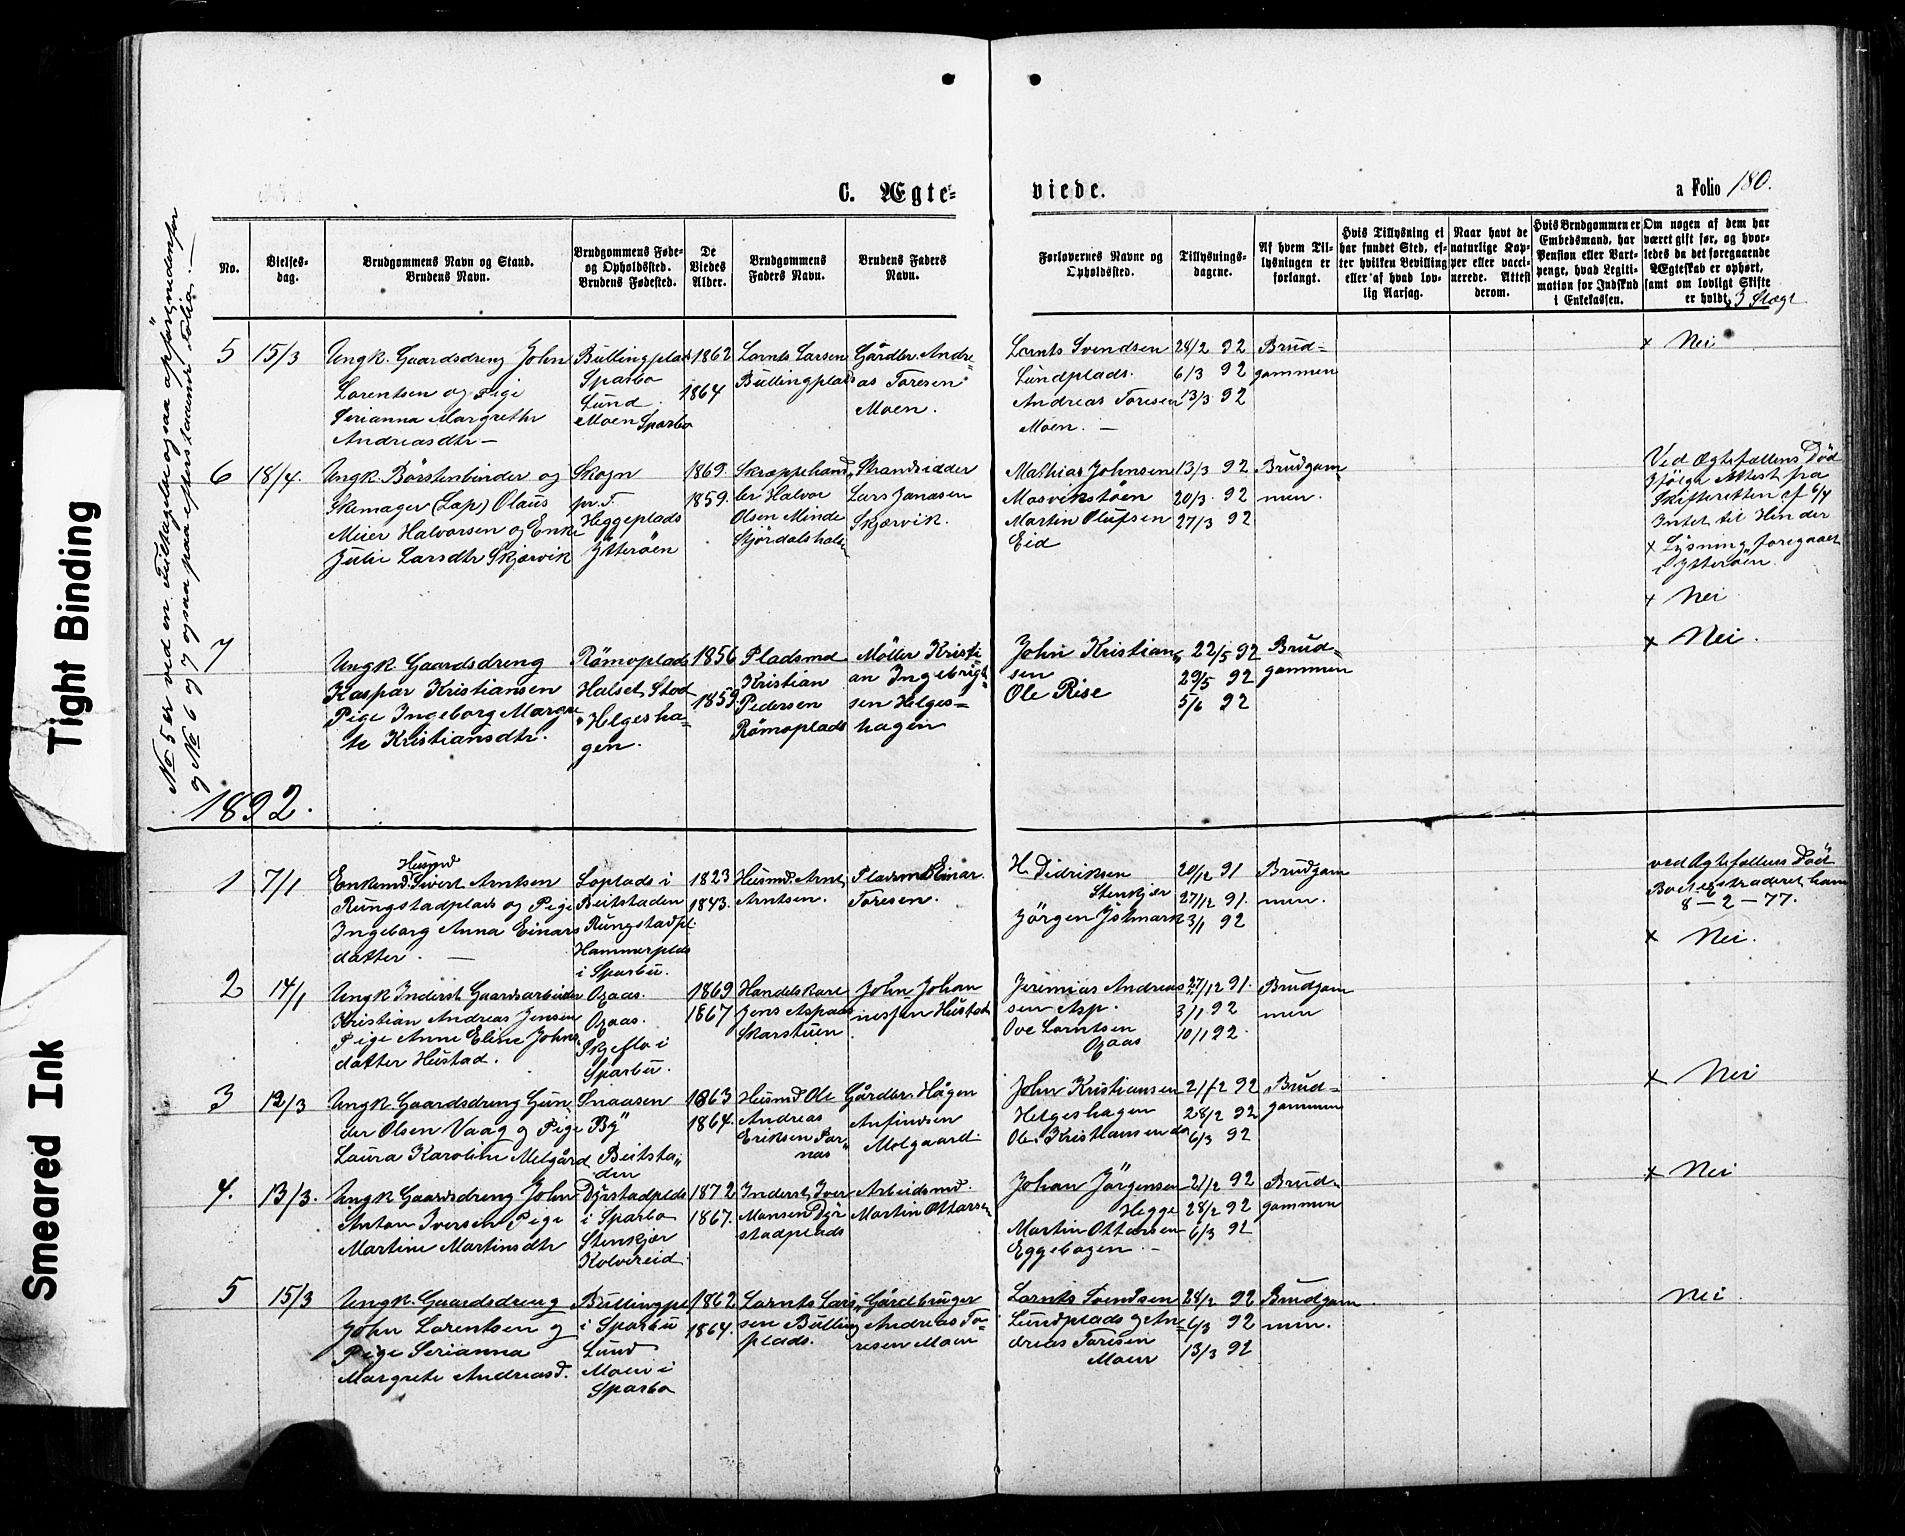 Tight Binding
Smeared Ink
C. Ægte-
viede.
a Folio 180.
No 5 er ved en Feiltagelse ogsaa opført nedenfor
og No 6 og 7 ogsaa paa efterstaaende Folio. —
No.
Vielses-
dag.
Brudgommens Navn og Stand.
Brudens Navn.
Brudgommens Føde-
og Opholdssted.
Brudens Fødested.
De
Viedes
Alder.
Brudgommens
Faders Navn.
Brudens Faders
Navn.
Forlovernes Navne og
Opholdssted.
Tillysnings-
dagene.
Af hvem Til-
lysningen er
forlangt.
Hvis Tillysning ei
har fundet Sted, ef-
ter hvilken Bevilling
eller af hvad lov-
lig Aarsag.
Naar havt de
naturlige Kop-
per eller vacci-
nerede. Attest
derom.
Hvis Brudgommen er
Embedsmand, har
Pension eller Vart-
penge, hvad Legiti-
mation for Indskud
i Enkekassen.
Om nogen af dem har
været gift før, og hvor-
ledes da det foregaaende
Ægteskab er ophørt,
samt om lovligt Skifte
er holdt.
5 15/3
Ungk. Gaardsdreng John
Lorentsen og Pige
Serianna Margrethe
Andreasdtr —
Bullingplads
Sparbo
Lund
Moen Sparbo
1862
1864
Lornts Larsen
Bullingplads
Gårdbr Andre
as Toresen
Moen.
Lornts Svendsen
Lundplads.
Andreas Toresen
Moen. —
28/2 92
6/3 92
13/3 92
Brud-
gommen
x Nei
6 18/4.
Ungk. Börstenbinder og
Skomager (Lap) Olaus
Meier Halvorsen og Enke
Julie Larsdtr Skjærvik
Skogn
pr. T.
Heggeplads
Ytteröen
1869.
1859.
Skræppehand
ler Halvor
Olsen Minde
Stjördalshalsen
Strandsidder
Lars Janasen
Skjærvik.
Mathias Johnsen
Mosvikstöen
Martin Olufsen
Eid
13/3 92
20/3. 92
27/3 92
Brudgom
men.
Ved Ægtefællens Död
ifölge Attest fra
Skifteretten af 6/4
Intet til Hinder
x Lysning foregaaet
i Ytteröen.
x Nei
7
Ungk. Gaardsdreng
Kaspar Kristiansen
Pige Ingeborg Margre
te Kristiansdtr.
Römoplads
Halset, Stod
Helgesha-
gen.
1856
1859
Pladsmd
Kristian
Pedersen
Römoplads
Möller Kristi
an Ingebrigt
sen Helges-
hagen
John Kristian
sen
Ole Rise
22/5 92
29/5 92
5/6 92
Brud-
gommen
x Nei.
1892.
1 7/1
Husmd
Enkemd. Sivert Arntsen
Rungstadplads og Pige
Ingeborg Anna Einars
datter. —
Loplads i
Beitstaden
Rungstadpl
Hammerplds
i Sparbu.
1823
1843.
Husmd. Arnt
Arntsen.
Pladsmd Einar
Toresen.
H. Didriksen
Stenkjær
Jörgen Ystmark
20/12 91
27/12 91.
3/1 92
Brudgom
men.
ved Ægtefællens Död
8 — 2 — 77.
x Nei.
2 14/1
Ungk Inderst Gaardsarbeider
Kristian Andreas Jensen
Pige Anne Eline Johns
datter Hustad.
Ogaas.
Ogaas.
Skjefto i
Sparbu.
1869
1867
Handelskare
Jens Aspaas
Skarstuen
John Johan
nessen Hustad
Jerimias Andreas
sen Asp.
Ove Lorntsen
Ogaas
27/12 91.
3/1 92
10/1 92.
Brudgom
men
x Nei
3 12/3
Ungk Gaardsdreng Gun
der Olsen Vaag og Pige
Laura Karoline Melgård
Snaasen
By
Beitsta
den
1863
1864.
Husmd Ole
Andreas
Eriksen Par
nas
Gårdbr Hågen
Anfinsen
Melgaard.
John Kristiansen
Helgeshagen
Ole Kristiansen do
21/2 92
28/2 92
6/3 92
Brud-
gommen
x Nei
4. 13/3.
Ungk Gaardsdreng John
Anton Iversen Pige
Martine Martinsdtr
Dyrstadplds
i Sparbo
Stenkjær
Kolvereid
1872
1867.
Inderst Iver
Monsen Dyr
stadplads
Arbeidsmd.
Martin Ottersen
Johan Jörgensen
Hegge
Martin Ottersen
Eggebogen. —
21/2 92
28/2 92
6/3 92
Brud-
gommen
5 15/3
Ungk. Gaardsdreng
John Lorentsen og
Pige Serianna
Margrete Andreasd.
Bullingpl
i Sparbu
Lund
Moen i
Sparbo
1862
1864.
Lornts Lars
sen Bulling
plads.
Gårdbruger
Andreas To-
resen Moen
Lornts Svendsen
Lundplads og An-
dreas Toresen
Moen
28/2 92
6/3 92
13/3 92
Brudgom
men.
Nei.